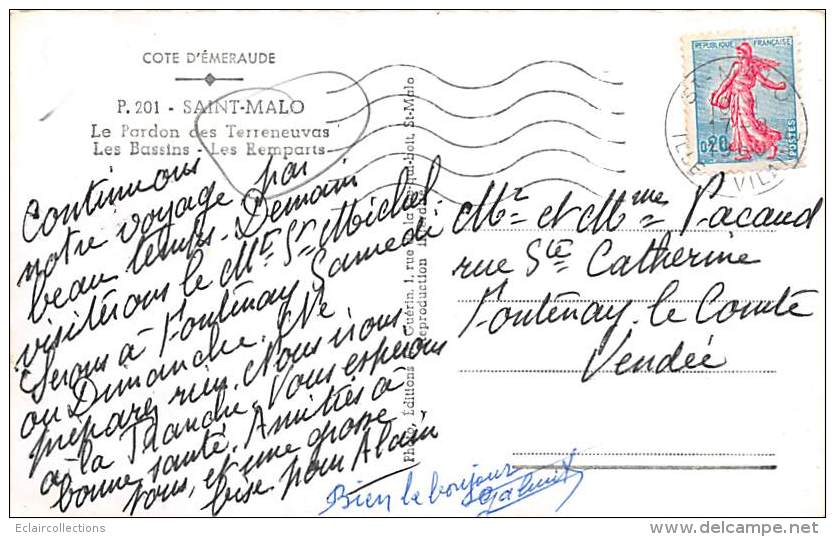 COTE D'ÉMERAUDE
P. 201 - SAINT-MALO
Le Pardon des Terreneuvas
Les Bassins - Les Remparts
Continuons
notre voyage par
beau temps. Demain
visiterons le Mt St Michel.
Serons à Fontenay Samedi
ou Dimanche. Ne
préparez rien. Nous irons
à la Tranche. Vous espérons
bonne santé. Amitiés à
tous, et une grosse
bise pour Alain
Bien le bonjour
Photo. Éditions Guérin, 1, rue St-Malo
Reproduction
REPUBLIQUE FRANÇAISE
0,20
POSTES
VILAINE
Mr et Mme Pacaud
rue Ste Catherine
Fontenay le Comte
Vendée
Eclaircollections